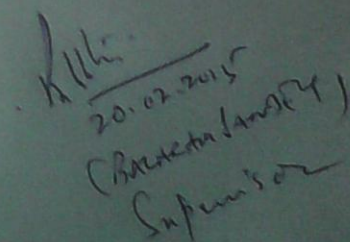 20.02.2015
(BALARAM PANDEY)
Supervisor